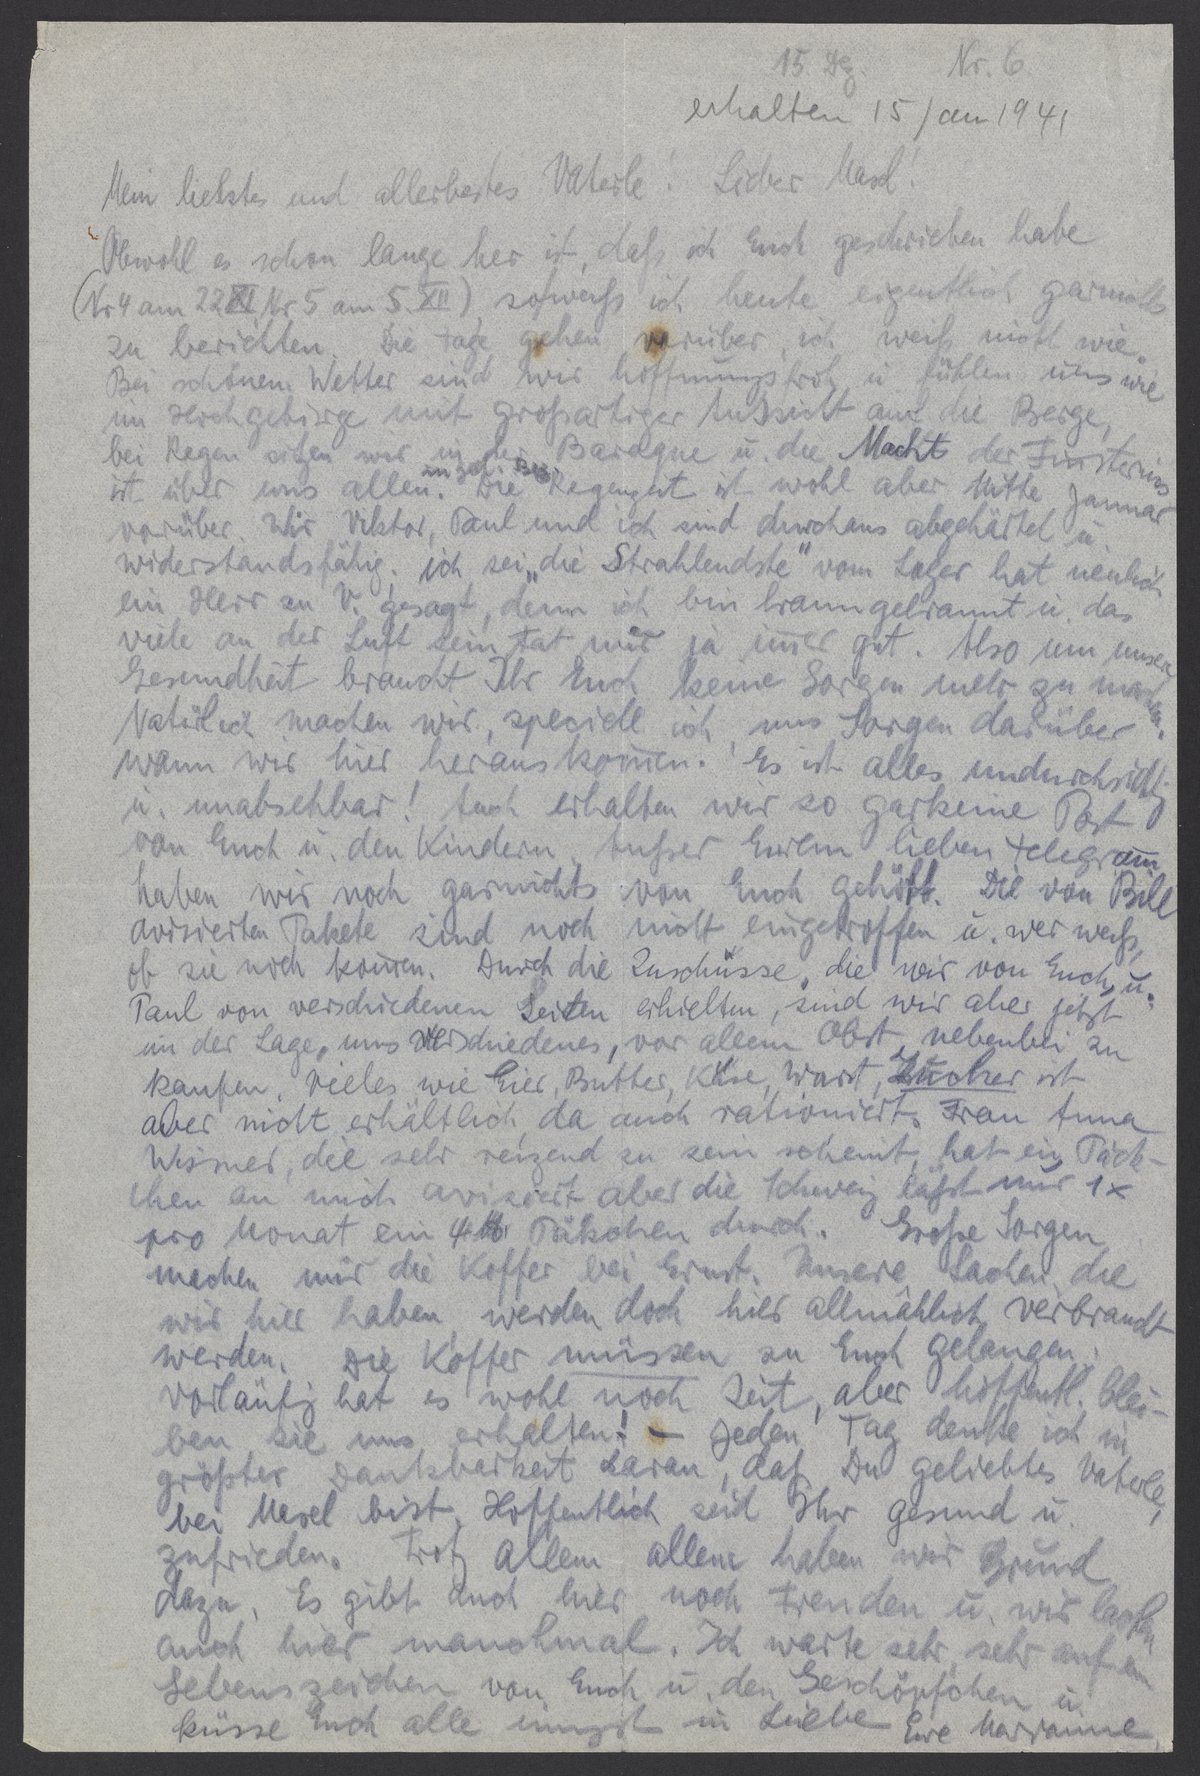 15. Dez. Nr. 6.
erhalten 15 Jan 1941
Mein liebstes und allerbestes Vaterle! Lieber Masel!
Obwohl es schon lange her ist, dass ich Euch geschrieben habe
(Nr 4 am 22 XI Nr 5 am 5. XII), so weiss ich heute eigentlich garnichts
zu berichten. Die Tage gehen vorüber, ich weiss nicht wie.
Bei schönem Wetter sind wir hoffnungsfroh u fühlen uns wie
im Hochgebirge mit grossartiger Aussicht auf die Berge,
bei Regen sitzen wir in der Baraque u. die Macht der Finsternis
ist über uns allen. Die Regenzeit ist wohl aber Mitte Januar
vorüber. Wir Viktor, Paul und ich sind durchaus abgehärtet u.
widerstandsfähig. ich sei "die Strahlendste" vom Lager hat neulich
ein Herr zu V. gesagt, denn ich bin braungebrannt u. das
viele an der Luft sein tat mir ja im̅er gut. Also um unsere
Gesundheit braucht Ihr Euch keine Sorgen mehr zu machen.
Natürlich machen wir, speciell ich, uns Sorgen darüber
wann wir hier herauskom̅en. Es ist alles undurchsichtig
u. unabsehbar! Auch erhalten wir so garkeine Post
von Euch u. den Kindern. Ausser Eurem lieben Telegram̅
haben wir noch garnichts von Euch gehört. Die von Bill
avisierten Pakete sind noch nicht eingetroffen u. wer weiss,
ob sie noch kom̅en. Durch die Zuschüsse, die wir von Euch, u.
Paul von verschiedenen Seiten erhielten, sind wir aber jetzt
in der Lage, uns verschiedenes, vor allem Obst, nebenbei zu
kaufen. Vieles wie Eier, Butter, Käse, Wurst, Zucker ist
aber nicht erhältlich, da auch rationiert. Frau Anna
Wismer, die sehr reizend zu sein scheint, hat ein Päck-
chen an mich avisiert aber die Schweiz lässt nur 1x
pro Monat ein 4 Päkchen durch. Grosse Sorgen
machen mir die Koffer bei Ernst. Unsere Sachen, die
wir hier haben, werden doch hier allmählich verbraucht
werden. Die Koffer müssen zu Euch gelangen.
Vorläufig hat es wohl noch Zeit, aber hoffentl. blei-
ben sie uns erhalten! – Jeden Tag denke ich in
grösster Dankbarkeit daran, dass Du geliebtes Vaterle,
bei Masel bist. Hoffentlich seid Ihr gesund u.
zufrieden. Trotz allem allem haben wir Grund
dazu. Es gibt auch hier noch Freuden u. wir lachen
auch hier manchmal. Ich warte sehr, sehr auf ein
Lebenszeichen von Euch u. den Geschöpfchen u.
küsse Euch alle innigst in Liebe Eure Marianne.